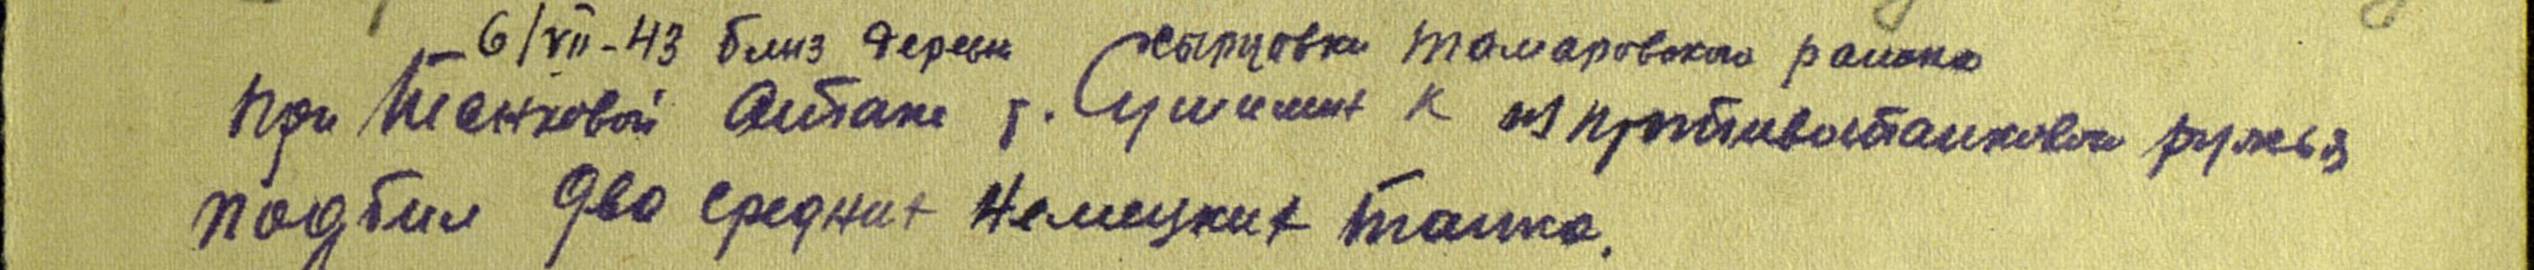 6/VII-43 близ дереви Сырцовки Томаровского района
при танковой Аттаке т. К из противотанкового ружья
подбил два средних Немецких танка.